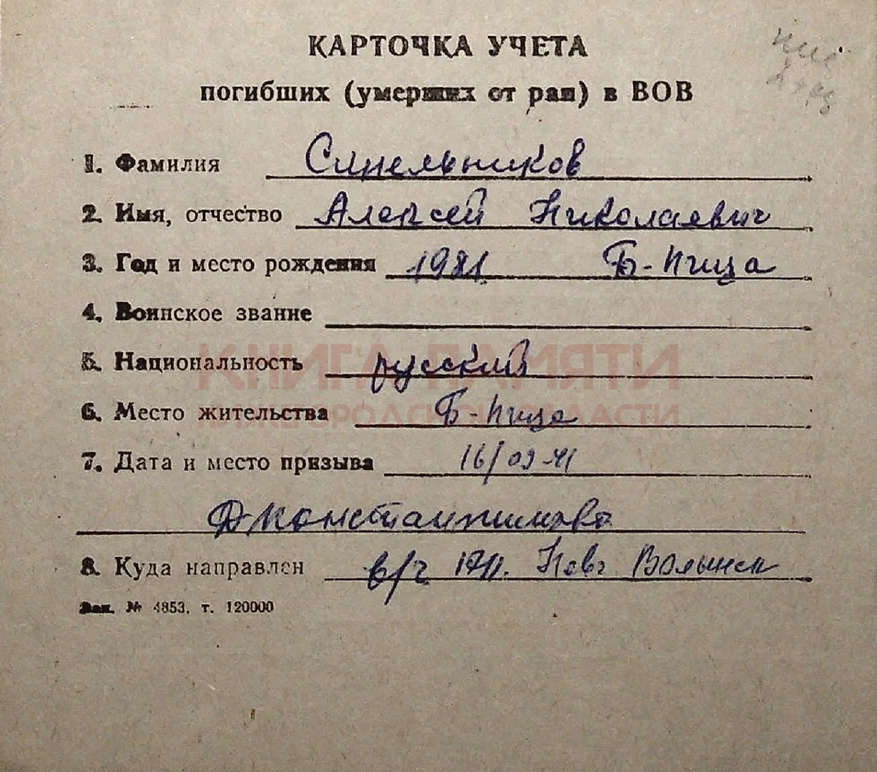 КАРТОЧКА УЧЕТА
погибших (умерших от ран) в ВОВ
1. Фамилия Синельников
2. Имя, отчество Алексей Николаевич
3. Год и место рождения 1981 Б-Пица
4. Воинское звание
5. Национальность русский
КНИГА ПАМЯТИ
6. Место жительства Б-Пица
НИЖЕГОРОДСКОЙ ОБЛАСТИ
7. Дата и место призыва 16/02-41
Д Константиново
8. Куда направлен в/ч Новг Волынск
Зак. № 4853, т. 120000